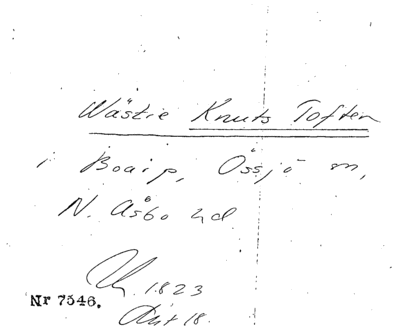 Wästie Knuts Toften
i Boarp, Össjö sn,
N. Åsbo hd
1823
Nr 7546.
18.